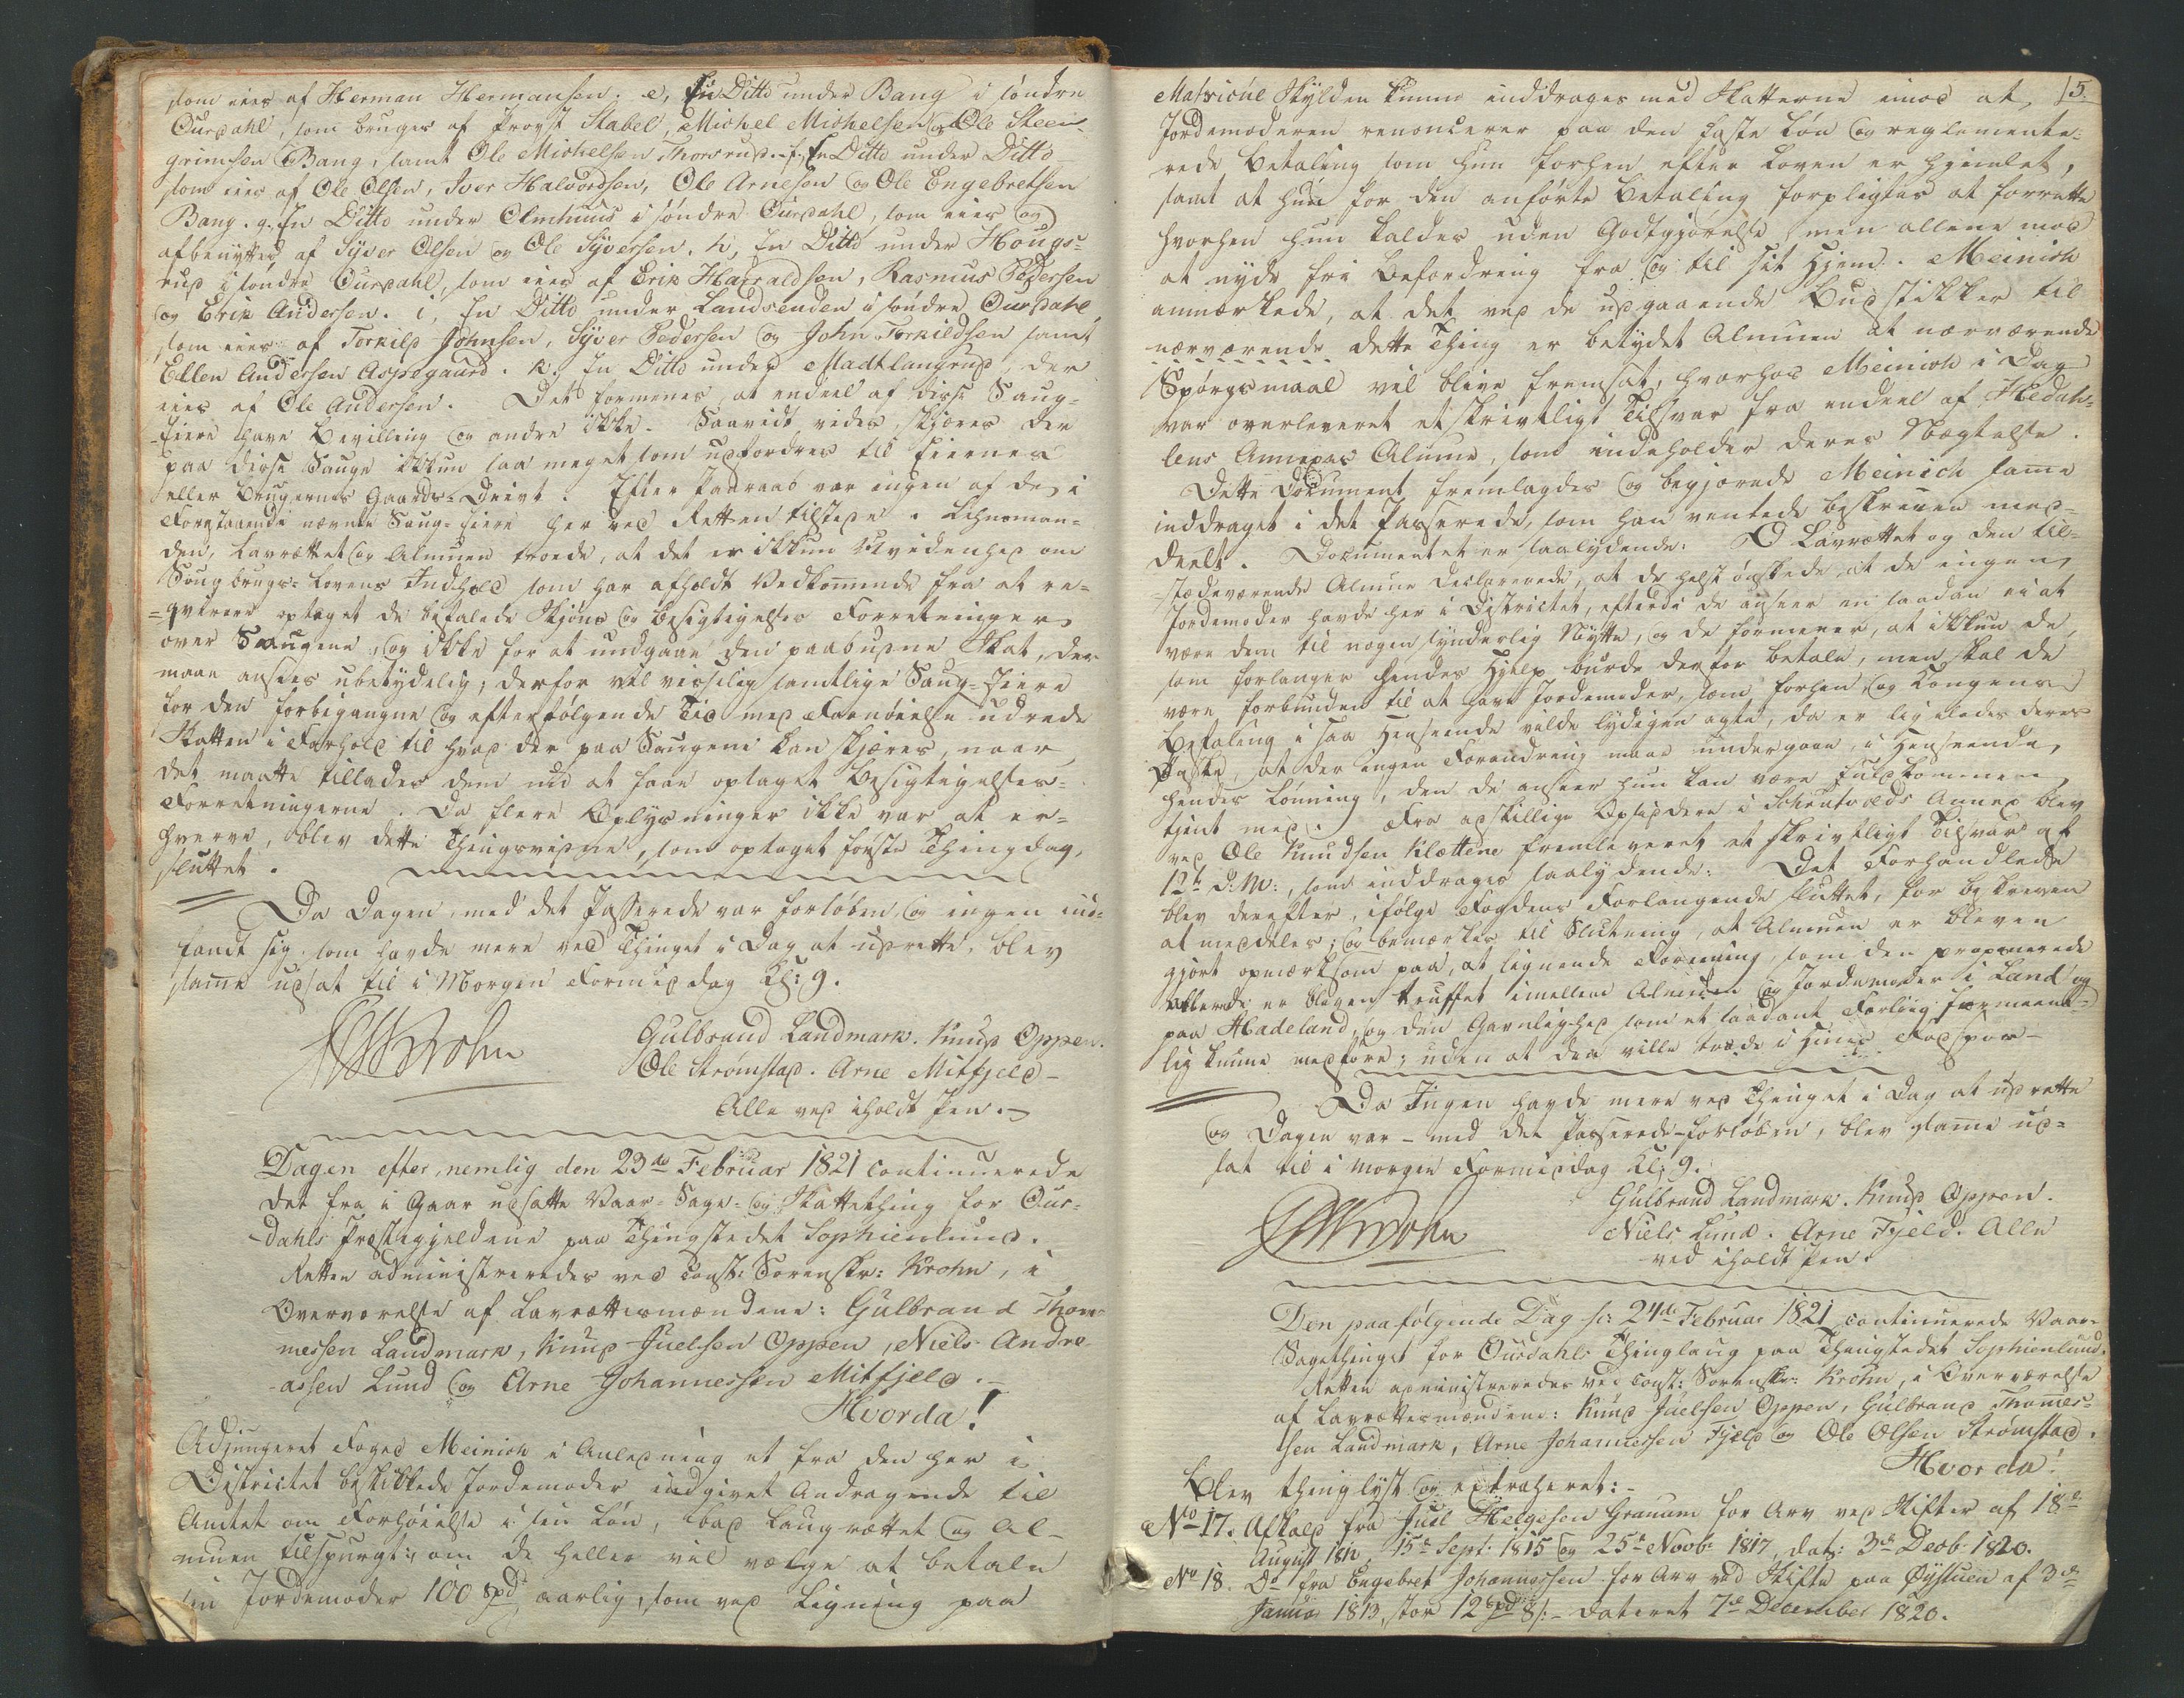 som eies af Herman Hermansen. e, En Ditto under Bang i søndre
Ourdahl, som bruges af Provst Stabel, Michel Michelsen og Ole Steen-
grimsen Bang, samt Ole Michelsen Thorsrud. f, En Ditto under Ditto
som eies af Ole Olsen, Iver Halvordsen, Ole Arnesen og Ole Engebretsen
Bang. g. En Ditto under Olmhuus i søndre Ourdahl, som eies og
afbenyttes af Syver Olsen og Ole Syversen. h, En Ditto under Hougs-
rud i søndre Ourdahl, som eies af Erik Harraldsen, Rasmus Pedersen
og Erik Andersen. i, En Ditto under Landsenden i søndre Ourdahl,
som eies af Torkild Johnsen, Syver Pedersen og John Torkildsen samt
Ellen Andersen Aspegaard. k. En Ditto under Madtlangrud, der
eies af Ole Andersen. Det formenes, at endeel af disse Saug-
Eiere have Bevilling og andre ikke. Saavidt vides, skjæres der
paa disse Sauge ikkun saa meget som udfordres til Eiernes
eller Brugernes Gaards-Drivt. Efter Paaraab var ingen af de i
Forestaaende nævnte Saug-Eiere her ved Retten tilstede. Lehnsman-
den, Lavrettet og Almuen troede, at det er ikkun Uvidenhed om
Saugbrugs-Lovens Indhold som har afholdt Vedkommende fra at re-
qvirere optaget de befalede Skjøns og Besigtigelses Forretninger
over Saugene, og ikke for at undgaae den paabudne Skat, der
maae ansees ubetydelig; derfor vil visselig samtlige Saug-Eiere
for den forbigangne og efterfølgende Tid med Fornøielse udrede
Skatten i Forhold til hvad der paa Saugene kan skjæres, naar
det maatte tillades dem nu at faae optaget Besigtigelses-
Forretningerne. Da flere Oplysninger ikke var at er-
hverve, blev dette Thingsvidne, som optaget første Thingdag,
sluttet.
Da Dagen, med det Passerede var forløben, og ingen ind-
fandt sig som havde mere ved Thinget i Dag at udrette, blev
samme udsat til i Morgen Formiddag Kl: 9.
Krohn
Gulbrand Landmark. Knud Oppen.
Ole Strømstad. Arne Mitfjeld-
Alle ved iholdt Pen.
Dagen efter, nemlig den 23de Februar 1821 continuerede
det fra i Gaar udsatte Vaar-Sage- og Skattething for Our-
dahls Præstegjeldene paa Thingstedet Sophienlund.
Retten administreredes ved const: Sorenskr: Krohn, i
Overværelse af Lavrettesmændene: Gulbrand Thom-
mesen Landmark, Knud Juelsen Oppen, Niels Andre-
asen Lund og Arne Johannessen Mitfjeld.
Hvorda!
Adjungeret Foged Meinich i Anledning et fra den her i
Districtet beskikkede Jordemoder indgivet Andragende til
Amtet om Forhøielse i sin Løn, bad Laugrettet og Al-
muen tilspurgt, om de heller vil vælge at betale
sin Jordemoder 100 Spd aarlig, som ved Ligning paa
5.
Matricul Skylden kunne inddrages med Skatterne imod at
Jordemoderen renoncerer paa den faste Løn og reglemente-
rede Betaling som hun forhen efter Loven er hjemlet,
samt at hun for den anførte Betaling forpligtes at forrette
hvorhen hun kaldes uden Godtgjørelse men allene mod
at nyde fri Befordring fra og til sit Hjem. Meinich
anmærkede, at det ved de udgaaende Budstikker til
nærværende dette Thing er betydet Almuen at nærværende
Spørgsmaal vil blive fremsat, hvorhos Meinich i Dag
var overleveret et skrivtligt Tilsvar fra endeel af Hedah-
lens Annexes Almue, som indeholder deres Nægtelse.
Dette Document fremlagdes og begjærede Meinich samme
inddraget i det Passerede, som han ventede beskreven med-
deelt. Documentet er saalydende. Lavrettet og den til-
stædeværende Almue declarerede, at de helst ønskede at de ingen
Jordemoder havde her i Districtet, efterdi de ansee en saadan ei at
være dem til nogen synderlig Nytte, og de formener, at ikkun de,
som forlanger hendes Hjelp burde derfor betale, men skal de
være forbunden til at have Jordemoder, som forhen, og Kongens
Befaling i saa Henseende vilde lydigen agte, da er ligeledes deres
Paastand, at der ingen Forandring maae undergaae i Henseende
hendes Lønning, den de anseer hun kan være fuldkommen
tjent med. Fra adskillige Opsiddere i Schrutvolds Annex blev
ved Ole Knudsen Klættene fremleveret et skrivtligt Tilsvar af
12te d: M:, som inddrages saalydende: Det Forhandlede
blev derefter, ifølge Fogdens Forlangende sluttet, for beskreven
at meddeles; og bemærkes til Slutning, at Almuen er bleven
gjort opmærksom paa, at lignende Forening, som den proponerede
allerede er bleven truffet imellem Almuen og Jordemoder i Land og
paa Hadeland, og den Gavnlighed som et saadant Forliig formeent-
lig kunne medføre; uden at den ville træde i Hines Fodspor-
Da Ingen havde mere ved Thinget i Dag at udrette
og Dagen var - med det Passerede-forløben, blev samme ud-
sat til i Morgen Formiddag Kl: 9.
Krohn
Gulbrand Landmark. Knud Oppen.
Niels Lund. Arne Fjeld. Alle
ved iholdt Pen.
Den paafølgende Dag sc: 24de Februar 1821 continuerede Vaar-
Sagethinget for Ourdahls Thinglaug paa Thingstedet Sophienlund.
Retten administreredes ved const: Sorenskr: Krohn, i Overværelse
af Lavrettesmændene: Knud Juelsen Oppen, Gulbrand Thommes-
sen Landmark, Arne Johannessen Fjeld og Ole Olsen Strømstad.
Hvorda!
Blev thinglyst og extraheret:-
No 17. Afkald fra Juel Helgesen Granum for Arv ved Skifter af 18de
August 1812, 15de Sept: 1815 og 25de Novb: 1817, dat: 3de Decb: 1820.
No 18. Do fra Engebret Johannessen for Arv ved Skifte paa Øystuen af 3de
Januar 1813, stor 12 Spd 8 s:- dateret 7de December 1820.